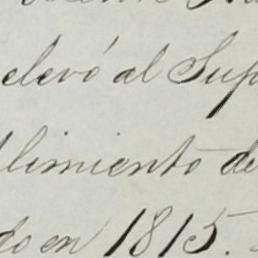 elevó al Sup
limiento de
do en 1815.